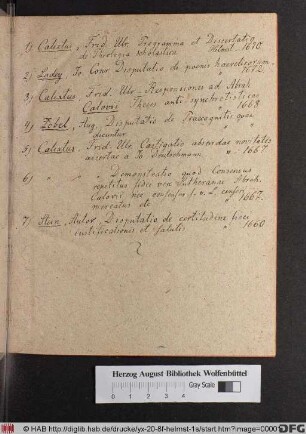 1) Calixtus, Frid. Ulr. Programma et Dissertatio
de Theologia scholastica Helmst. 1670.
2) Disputatio de poenis haereticorum
1672
3) Calixtus, Frid. Ulr. Responsiones ad Abrah.
Calovii Theses anti syncretisticas
" 1668
4) Zebel, Aug. Disputatio de
dicuntur
5) Calixtus, Frid. Ulr. Castigatio novitates
" 1667
6) " " " Demonstratio quod Consensus
repetitus fidei vere Lutheranae Abrah.
Calovii nec consensus
mereatur etc " 1667.
7) Disputatio de certitudine
justificationis et salutis " 1660
Herzog August Bibliothek Wolfenbüttel
0 1 2 3 4
Gray Scale
© HAB http://diglib.hab.de/drucke/yx-20-8f-helmst-1s/start.htm?image=00001
DFG